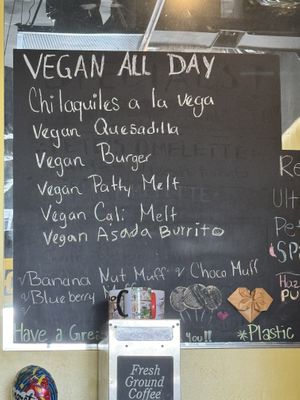 VEGAN ALL DAY
Chilaquiles a la vega
Vegan Quesadilla
Vegan Burger
Vegan Patty Melt
Vegan Cali Melt
Vegan Asada Burrito
√Banana Nut Muff √ Choco Muff
√Blueberry
Have a Grea
You!!
*Plastic
Fresh
Ground
Coffee
Re
Ult
Pe
Spa
Haz
Pu